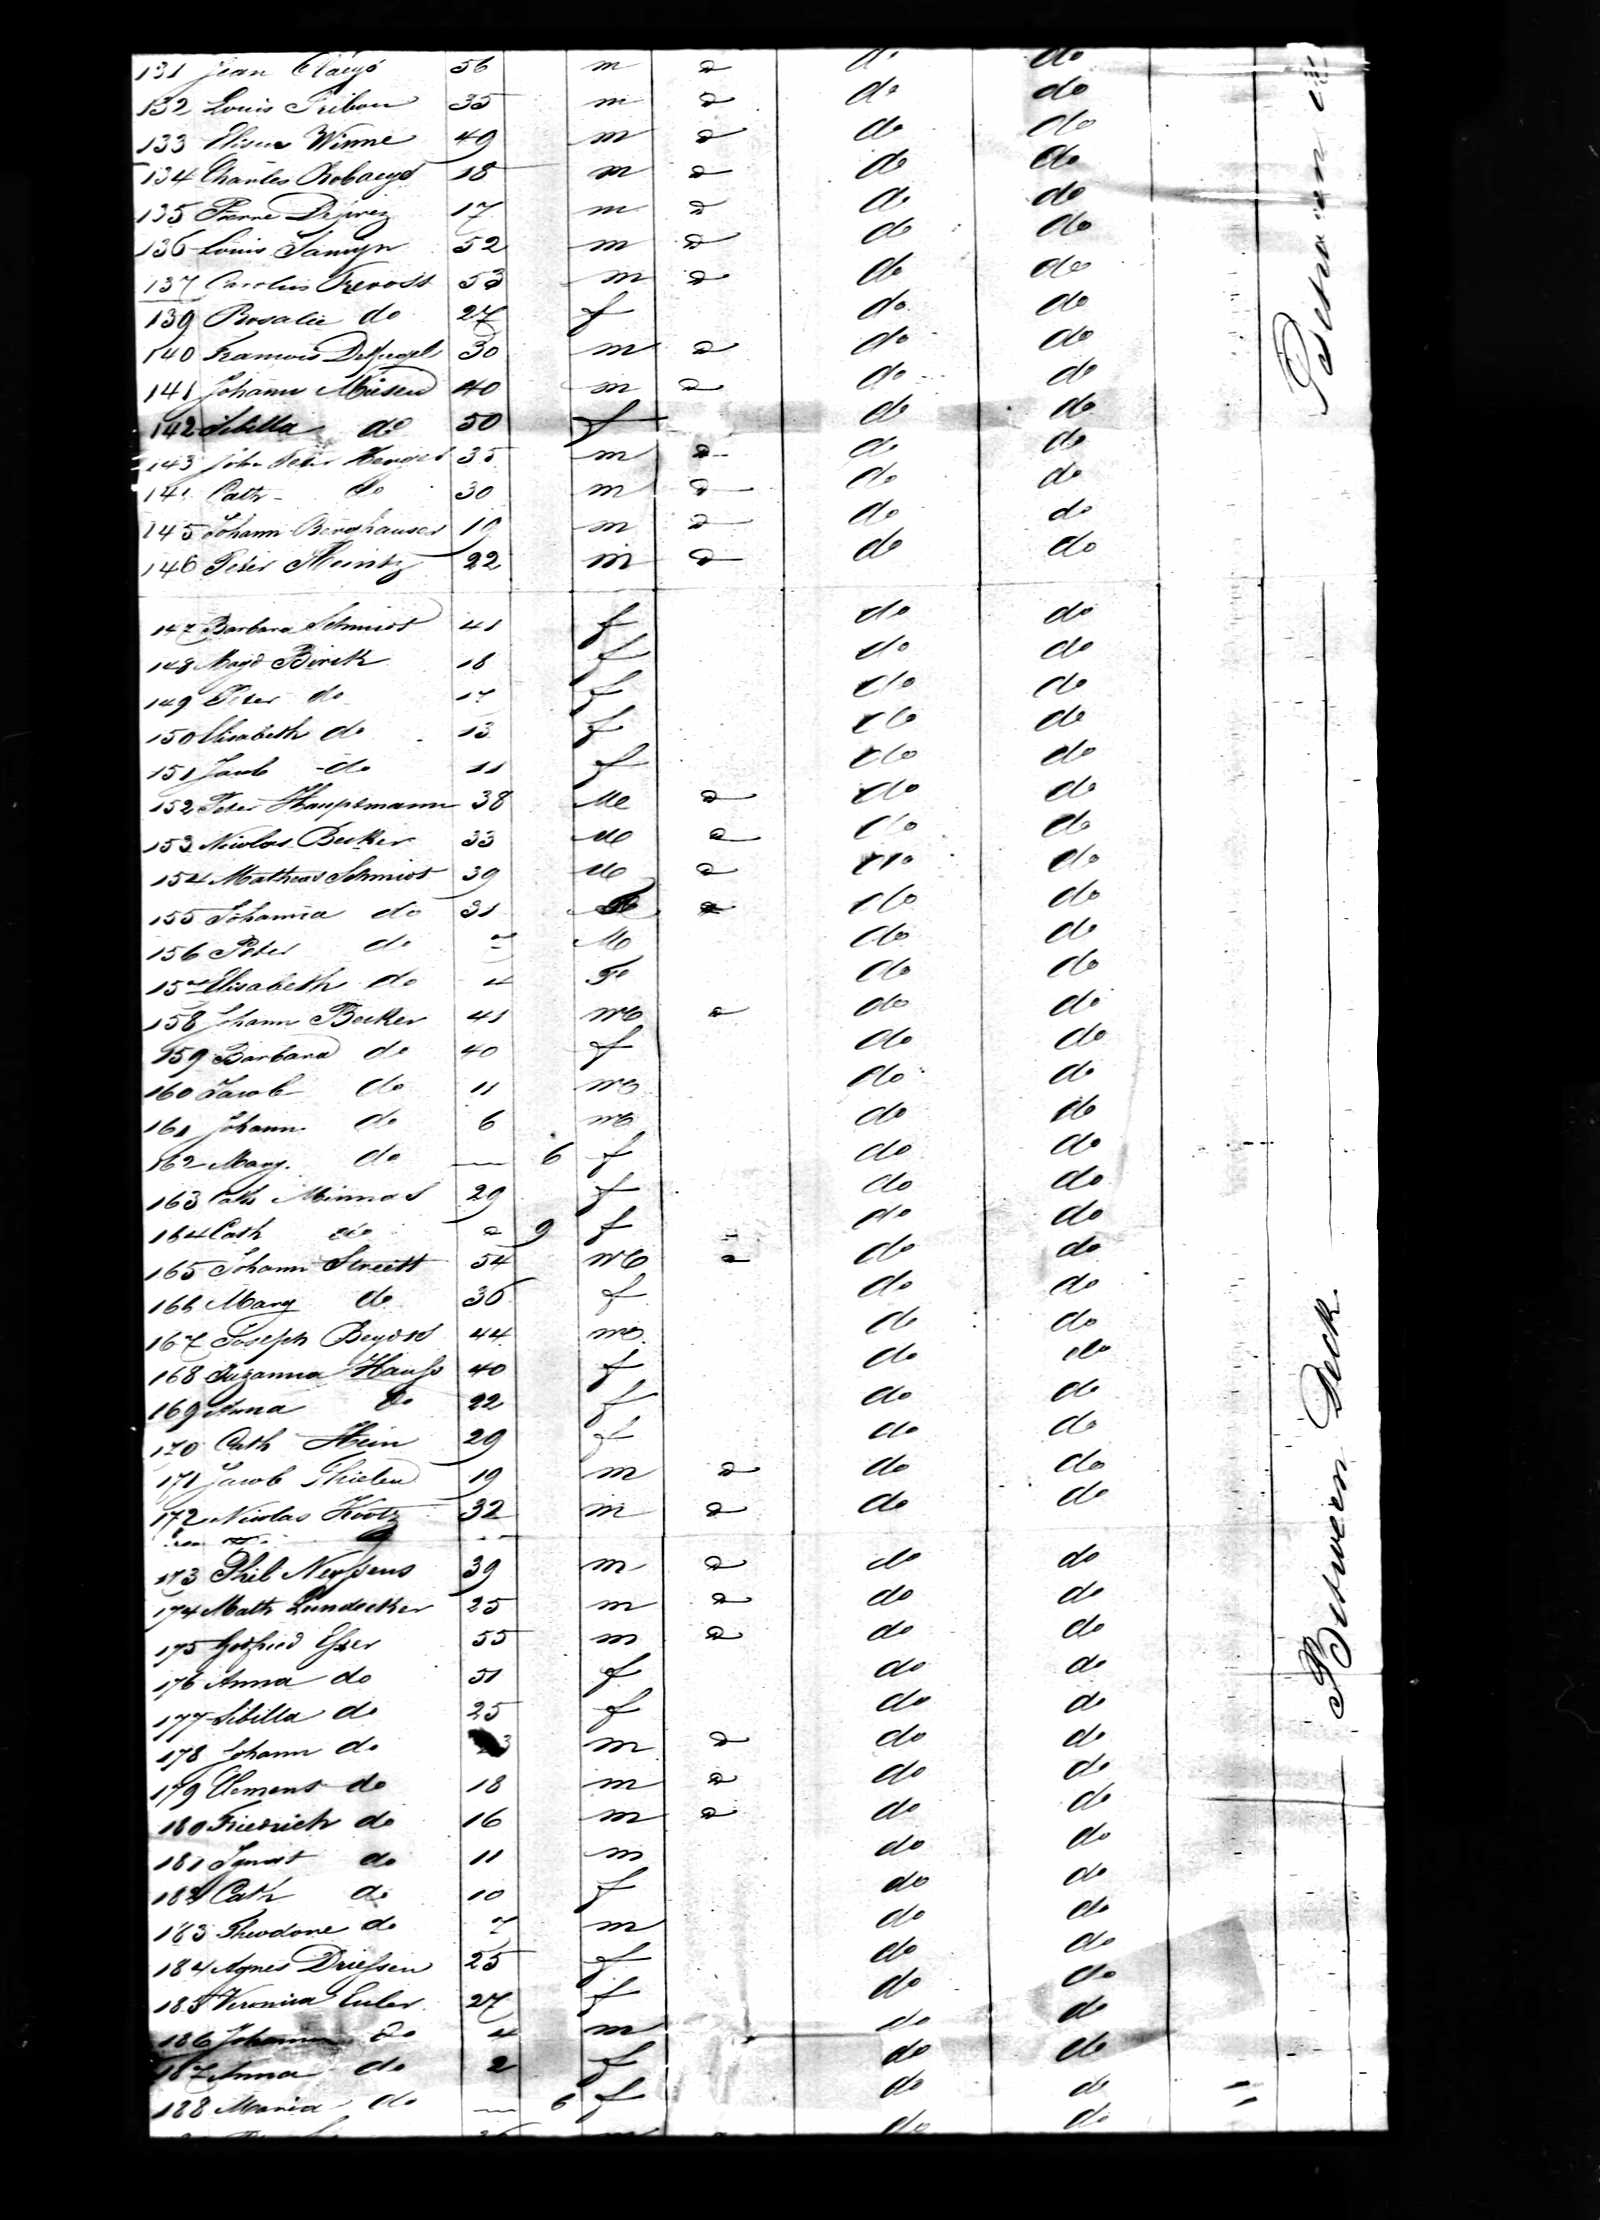 131 Jean Claeys 56 m a do do
132 Louis Tribou 35 m a do do
133 Winne 49 m a do do
134 Charles Robaeys 18 m a do do
135 Pierre 17 m a do do
136 Louis Samyn 52 m a do do
137 Carolus 53 m a do do
139 Rosalie do 27 f do do
140 30 m a do do
141 Johann 40 m a do do
142 Sibilla do 50 f do do
143 John Peter 35 m a do do
14 Cath do 30 m a do do
145 Johann Berghauser 19 m a do do
146 Peter 22 m a do do
147 Barbara Schmidt 41 f do do
148 18 f do do
149 Peter do 17 f do do
150 Elisabeth do 13 f do do
151 Jacob do 11 f do do
152 Peter Hauptmann 38 M a do do
153 Nicolas Becker 33 M a do do
154 Mathias Schmidt 39 M a do do
155 Johanna do 31 do do
156 Peter do 7 M do do
157 Elisabeth do 4 F do do
158 Johann Becker 41 m a do do
159 Barbara do 40 f do do
160 Jacob do 11 m do do
161 Johann do 6 m do do
162 Marg. do — 6 f do do
163 Cath 29 f do do
164 Cath do 9 f do do
165 Johann 54 m a do do
166 Marg do 36 f do do
167 Joseph 44 m do do
168 Suzanna 40 f do do
169 Anna do 22 f do do
170 Cath Hein 29 f do do
171 Jacob Thielen 19 m a do do
172 Nicolas 32 m a do do
173 Phil 39 m a do do
174 Math 25 m a do do
175 Gotfried Esser 55 m a do do
176 Anna do 51 f do do
177 Sibilla do 25 f do do
178 Johann do m a do do
179 Clemens do 18 m a do do
180 Friedrich do 16 m a do do
181 Ignat do 11 m do do
182 Cath do 10 f do do
183 Theodore do 7 m do do
184 Agnes Driessen 25 f do do
185 Veronica Euler 27 f do do
186 Johann do 4 m do do
187 Anna do 2 f do do
188 Maria do — 6 f do do
do do
Between Deck
Between